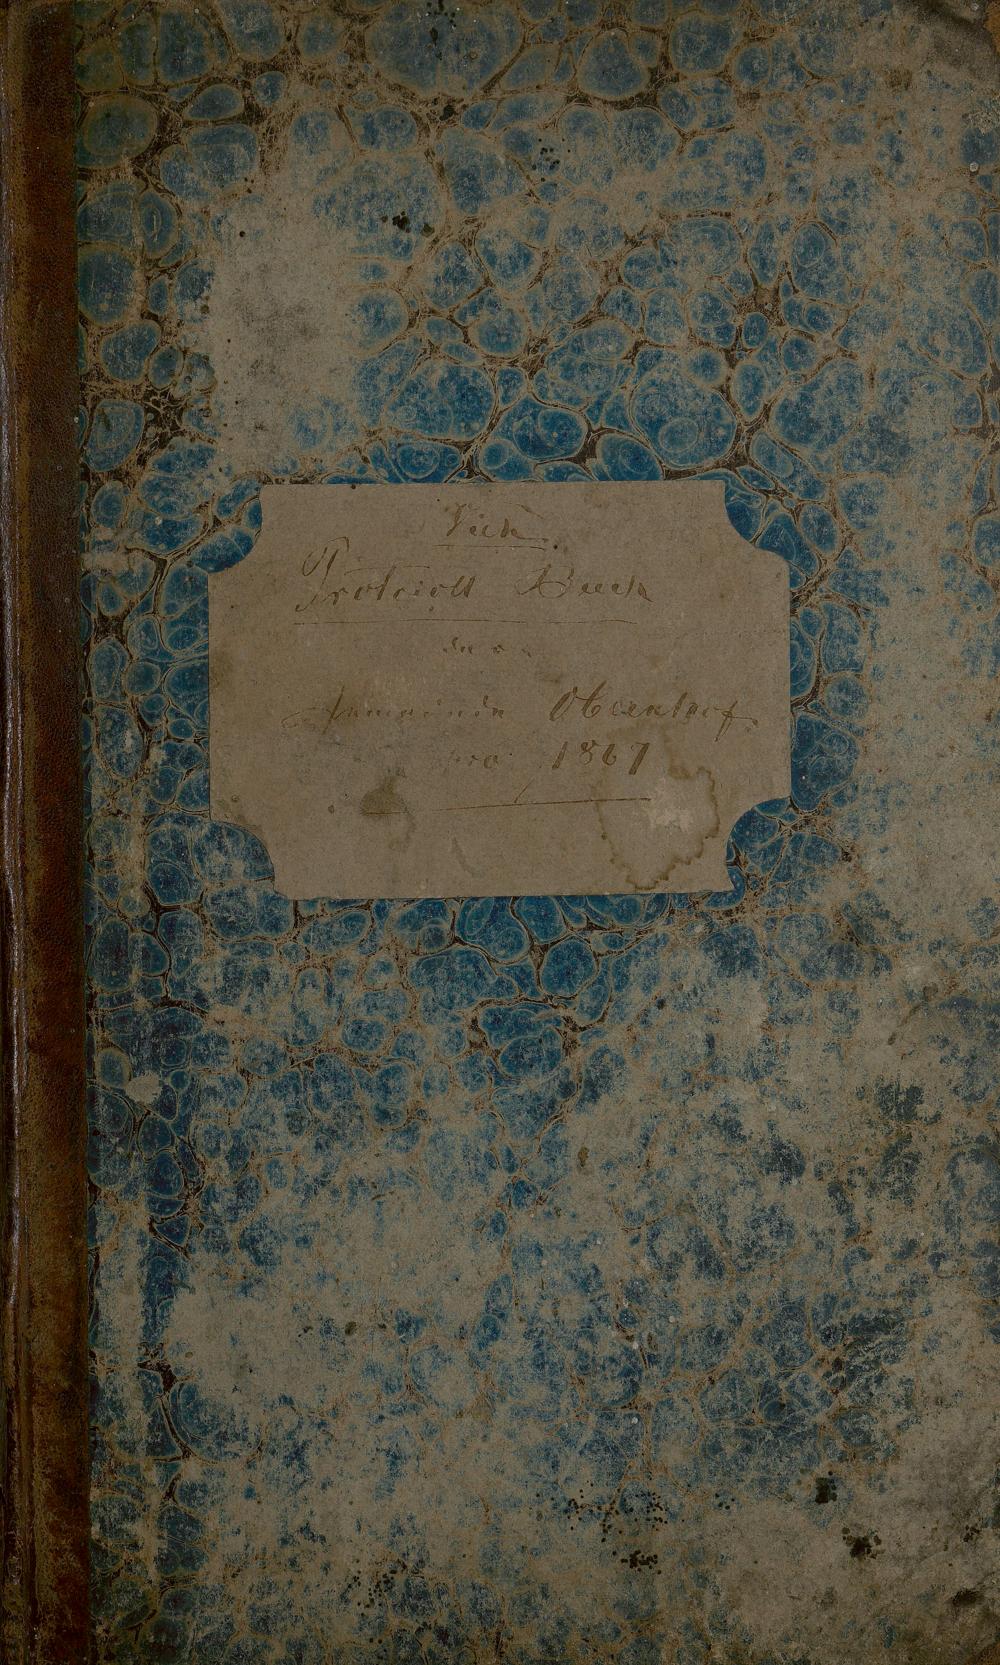 Vieh
Protocoll Buch
der
Gemeinde Oberndorf
pro 1867